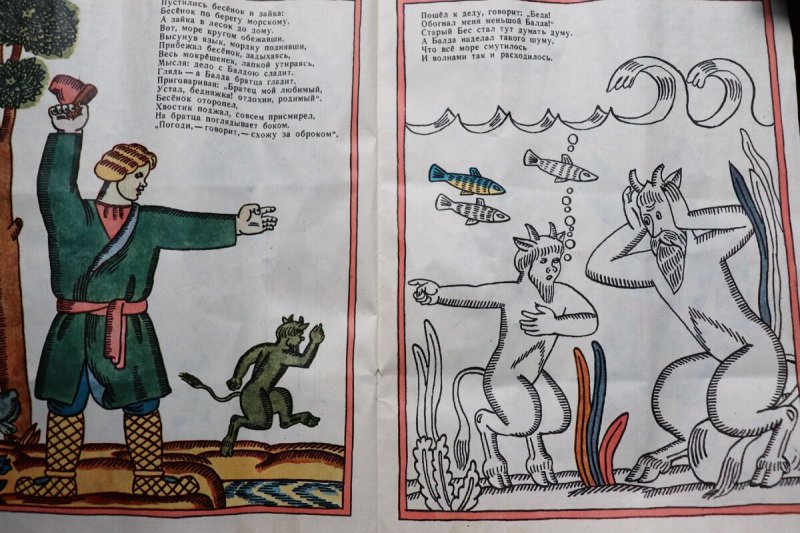 Пустились бесёнок и зайка:
Бесёнок по берегу морскому,
А зайка в лесок до дому.
Вот, море кругом обежавши,
Высунув язык, мордку поднявши,
Прибежал бесёнок, задыхаясь,
Весь мокрёшенек, лапкой утираясь,
Мысля: дело с Балдою сладит.
Глядь — а Балда братца гладит,
Приговаривая: „Братец мой любимый,
Устал, бедняжка! отдохни, родимый“.
Бесёнок оторопел,
Хвостик поджал, совсем присмирел,
На братца поглядывает боком.
„Погоди, — говорит, — схожу за оброком“,
Пошёл к деду, говорит: „Беда!
Обогнал меня меньшой Балда!“
Старый Бес стал тут думать думу.
А Балда наделал такого шуму,
Что всё море смутилось
И волнами так и расходилось.